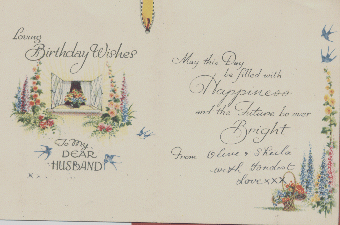 Loving
Birthday Wishes
To My
DEAR
HUSBAND
May this Day
be filled with
Happiness
and the Future be ever
Bright
From Olive & Sheila
with Fondest
Love xxx